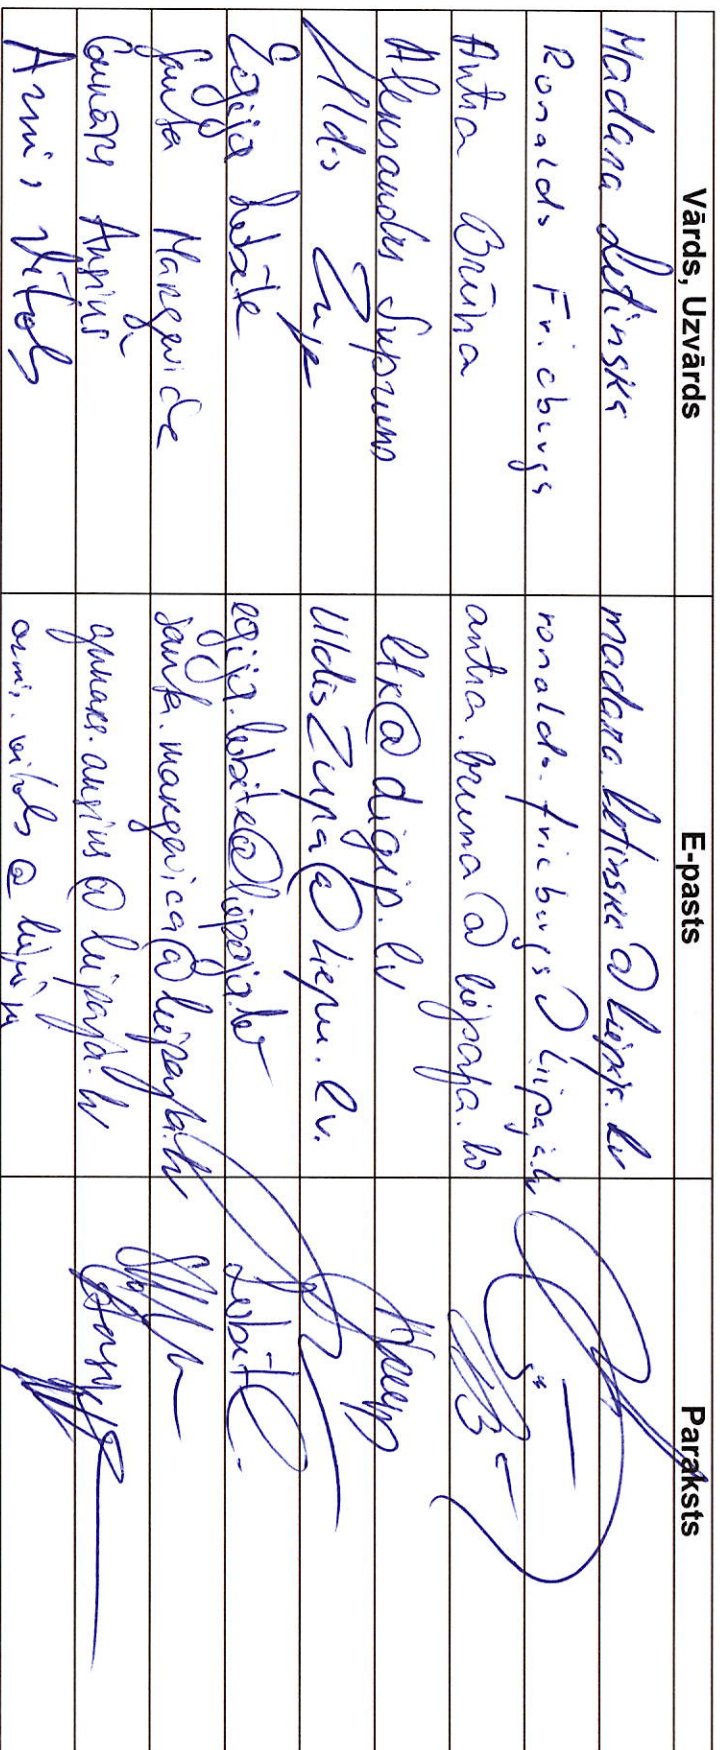 Vārds, Uzvārds E-pasts Paraksts
Madara Letinska madara.letinska@liepaja.lv
Ronalds Fricbergs ronalds.fricbergs@liepaja.lv
Antra Brūna antra.bruna@liepaja.lv
Aleksandrs Supruns ltk@digip.lv
Uldis Zupa UldisZupa@liepu.lv.
Egija Lubite egija.lubite@liepaja.lv Lubite
Santa Margevica santa.margevica@liepaja.lv
Gunārs Ansiņš gunars.ansins@liepaja.lv
Armis Vītols armis.vitols@